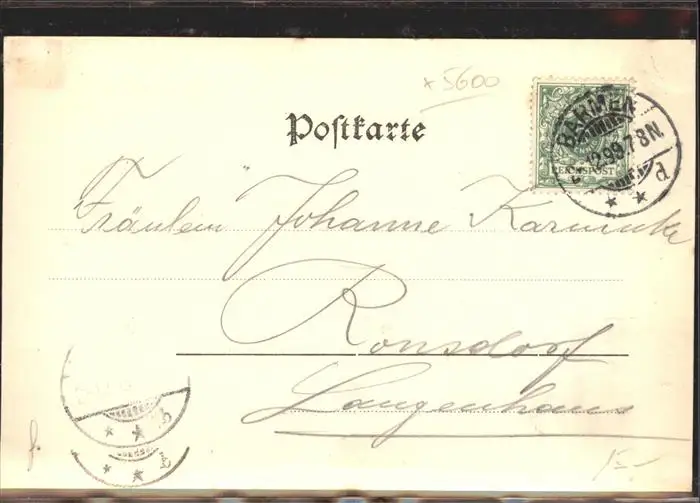 x 5600
Postkarte
BARMEN
12.99.7-8N.
d
REICHSPOST
Fräulein Johanne
Ronsdorf
Langenhaus